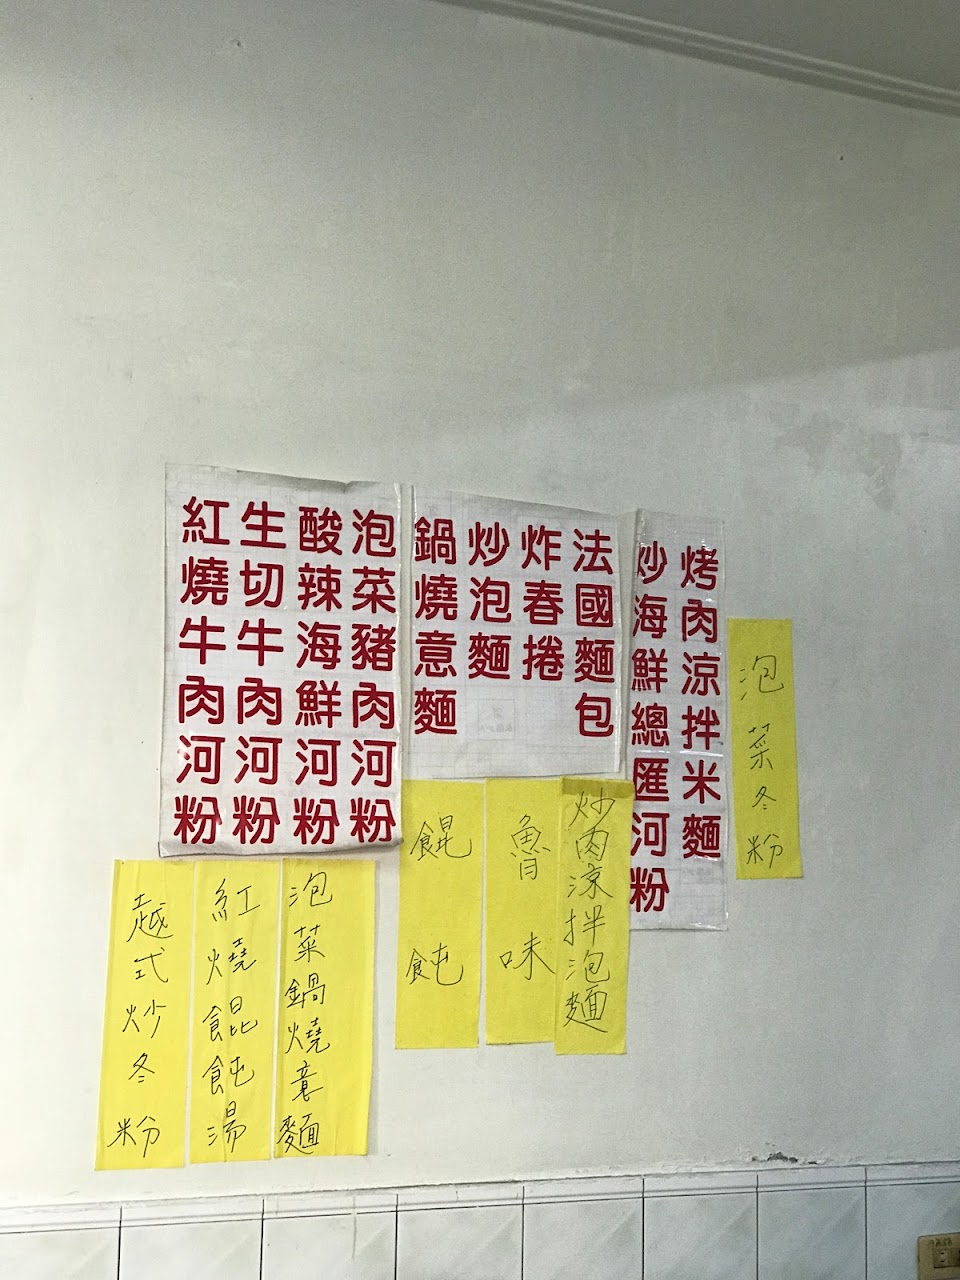 泡菜冬粉
烤肉涼拌米麵
炒海鮮總匯河粉
法國麵包
炸春捲
炒泡麵
鍋燒意麵
泡菜豬肉河粉
酸辣海鮮河粉
生切牛肉河粉
紅燒牛肉河粉
炒肉涼拌泡麵
魯味
餛飩
泡菜鍋燒意麵
紅燒餛飩湯
越式炒冬粉